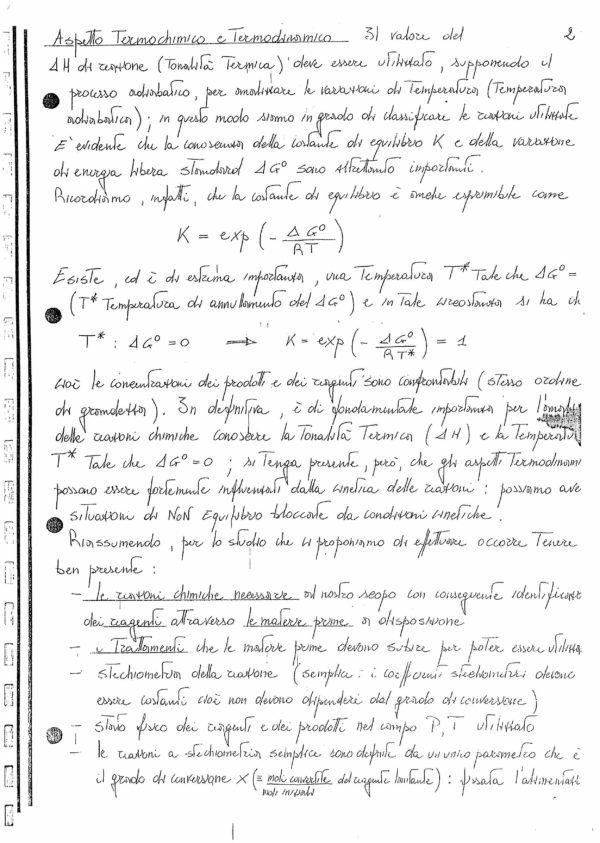 Aspetto Termochimico e Termodinamico Il valore del 2
ΔH di reazione (Tonalità Termica) deve essere utilizzato, supponendo il
processo adiabatico, per analizzare le variazioni di Temperatura (Temperatura
adiabatica); in questo modo siamo in grado di classificare le reazioni utilizzate
E' evidente che la conoscenza della costante di equilibrio K e della variazione
di energia libera standard ΔG° sono altrettanto importanti.
Ricordiamo, infatti, che la costante di equilibrio è anche esprimibile come
K = exp (- ΔG° / RT)
Esiste, ed è di estrema importanza, una Temperatura T* Tale che ΔG° =
(T* Temperatura di annullamento del ΔG°) e in Tale circostanza si ha ch
T* : ΔG° = 0 ⟹ K = exp (- ΔG° / RT*) = 1
cioè le concentrazioni dei prodotti e dei reagenti sono confrontabili (stesso ordine
di grandezza). In definitiva, è di fondamentale importanza per l'
delle reazioni chimiche conoscere la Tonalità Termica (ΔH) e la Temperatur
T* Tale che ΔG° = 0 ; si Tenga presente, però, che gli aspetti Termodinami
possono essere fortemente influenzati dalla cinetica delle reazioni : possiamo ave
situazioni di NON Equilibrio bloccate da condizioni cinetiche.
Riassumendo, per lo studio che ci proponiamo di effettuare occorre Tenere
ben presente :
- le reazioni chimiche necessarie al nostro scopo con conseguente identificazi
dei reagenti attraverso le materie prime a disposizione
- i Trattamenti che le materie prime devono subire per poter essere utilizza
- stechiometria della reazione (semplice : i coefficienti stechiometrici devono
essere costanti cioè non devono dipendere dal grado di conversione)
- stato fisico dei reagenti e dei prodotti nel campo P, T utilizzato
- le reazioni a stechiometria semplice sono definite da un unico parametro che è
il grado di conversione X (= moli convertite / moli iniziali del reagente limitante) : fissata l'alimentazi